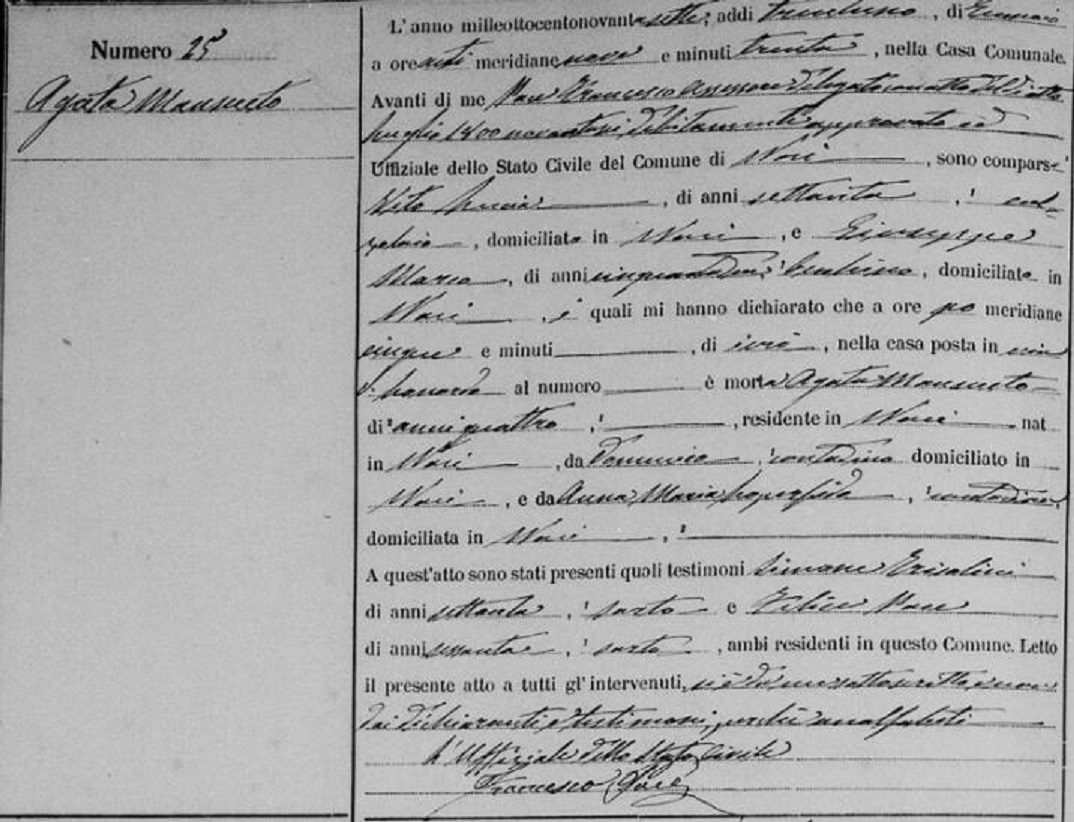 Numero 25
Agata Mansueto
L'anno milleottocentonovantasette, addì trentuno, di Gennaio
a ore anti meridiane nove e minuti trenta, nella Casa Comunale.
Avanti di me Pace Francesco assessore delegato con atto del di otto
luglio 1800 novantasei debitamente approvato ed
Uffiziale dello Stato Civile del Comune di Noci, sono comparsi
Vito, di anni settanta,
domiciliato in Noci, e Giuseppe
di anni, becchino, domiciliato in
Noci, i quali mi hanno dichiarato che a ore po meridiane
cinque e minuti, di ieri, nella casa posta in
al numero è morta Agata Mansueto
di anni quattro, residente in Noci, nat
in Noci, da Domenico, contadino domiciliato in
Noci, e da Anna Maria, contadina,
domiciliata in Noci,
A quest'atto sono stati presenti quali testimoni Simone
di anni settanta, sarto e Felice Pace
di anni sessanta, sarto, ambi residenti in questo Comune. Letto
il presente atto a tutti gl'intervenuti, si è da me sottoscritto e non
dai dichiaranti e testimoni, perchè analfabeti
L'Uffiziale dello Stato Civile
Francesco Pace